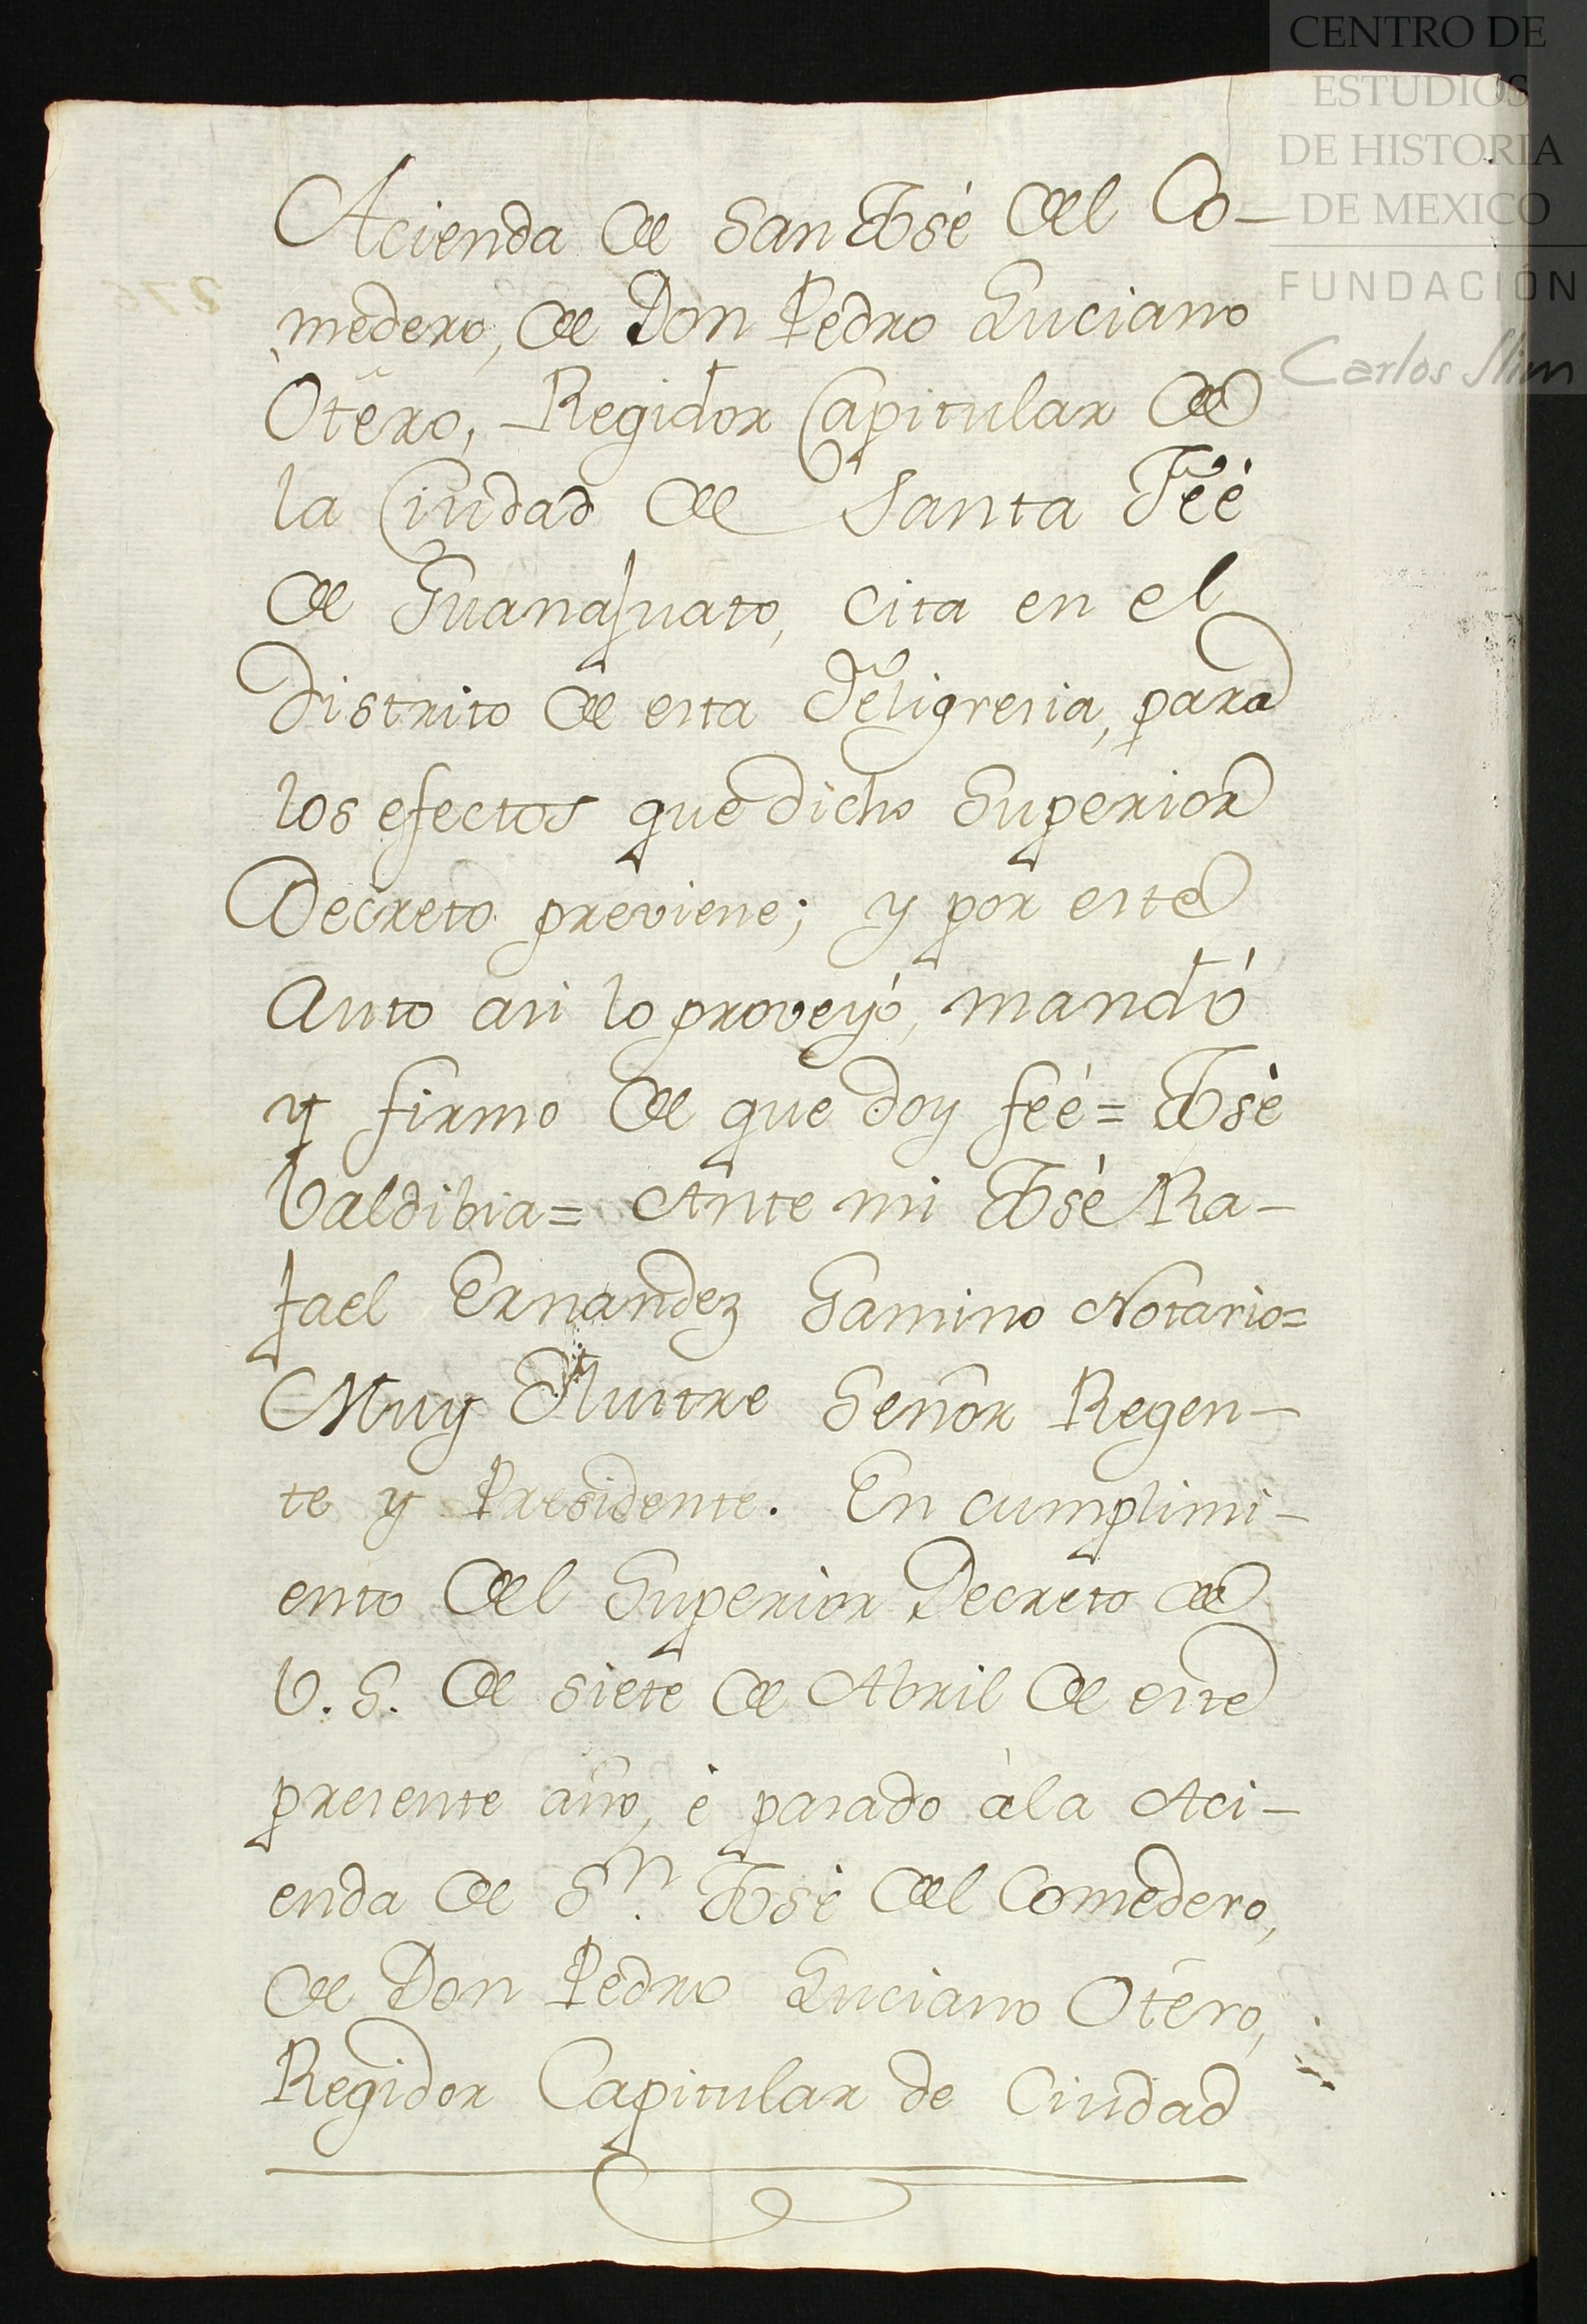 CENTRO DE
ESTUDIOS
DE HISTORIA
DE MEXICO
FUNDACIÓN
Carlos Slim
Acienda de San José del Co-
medero, de Don Pedro Luciano
Otero, Regidor Capitular de
la Ciudad de Santa Feé
de Guanajuato, cita en el
Distrito de esta Feligresia, para
los efectos que dicho Superior
Decreto previene; y por este
Auto asi lo proveyó, mandó
y firmo de que doy feé = José
Valdibia = Ante mi José Ra-
fael Ernandez Gamino Notario =
Muy Ilustre Señor Regen-
te y Presidente. En cumplimi-
ento del Superior Decreto de
V. S. de siete de Abril de este
presente año, é pasado àla Aci-
enda de Sn. José del Comedero,
de Don Pedro Luciano Otero,
Regidor Capitular de Ciudad